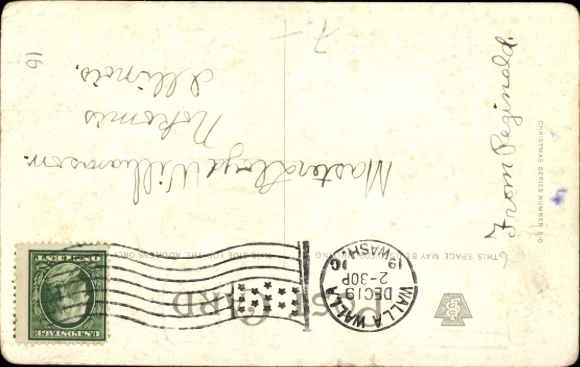 POST CARD
THIS SPACE MAY BE
THIS SIDE FOR THE ADDRESS ONLY
WALLA WALLA
DEC 19
2-30P
1910
WASH.
U.S. POSTAGE
ONE CENT
Master Lloyd Williamson.
Nokomis
Illinois.
From Reginald.
CHRISTMAS SERIES NUMBER 510
7-
16